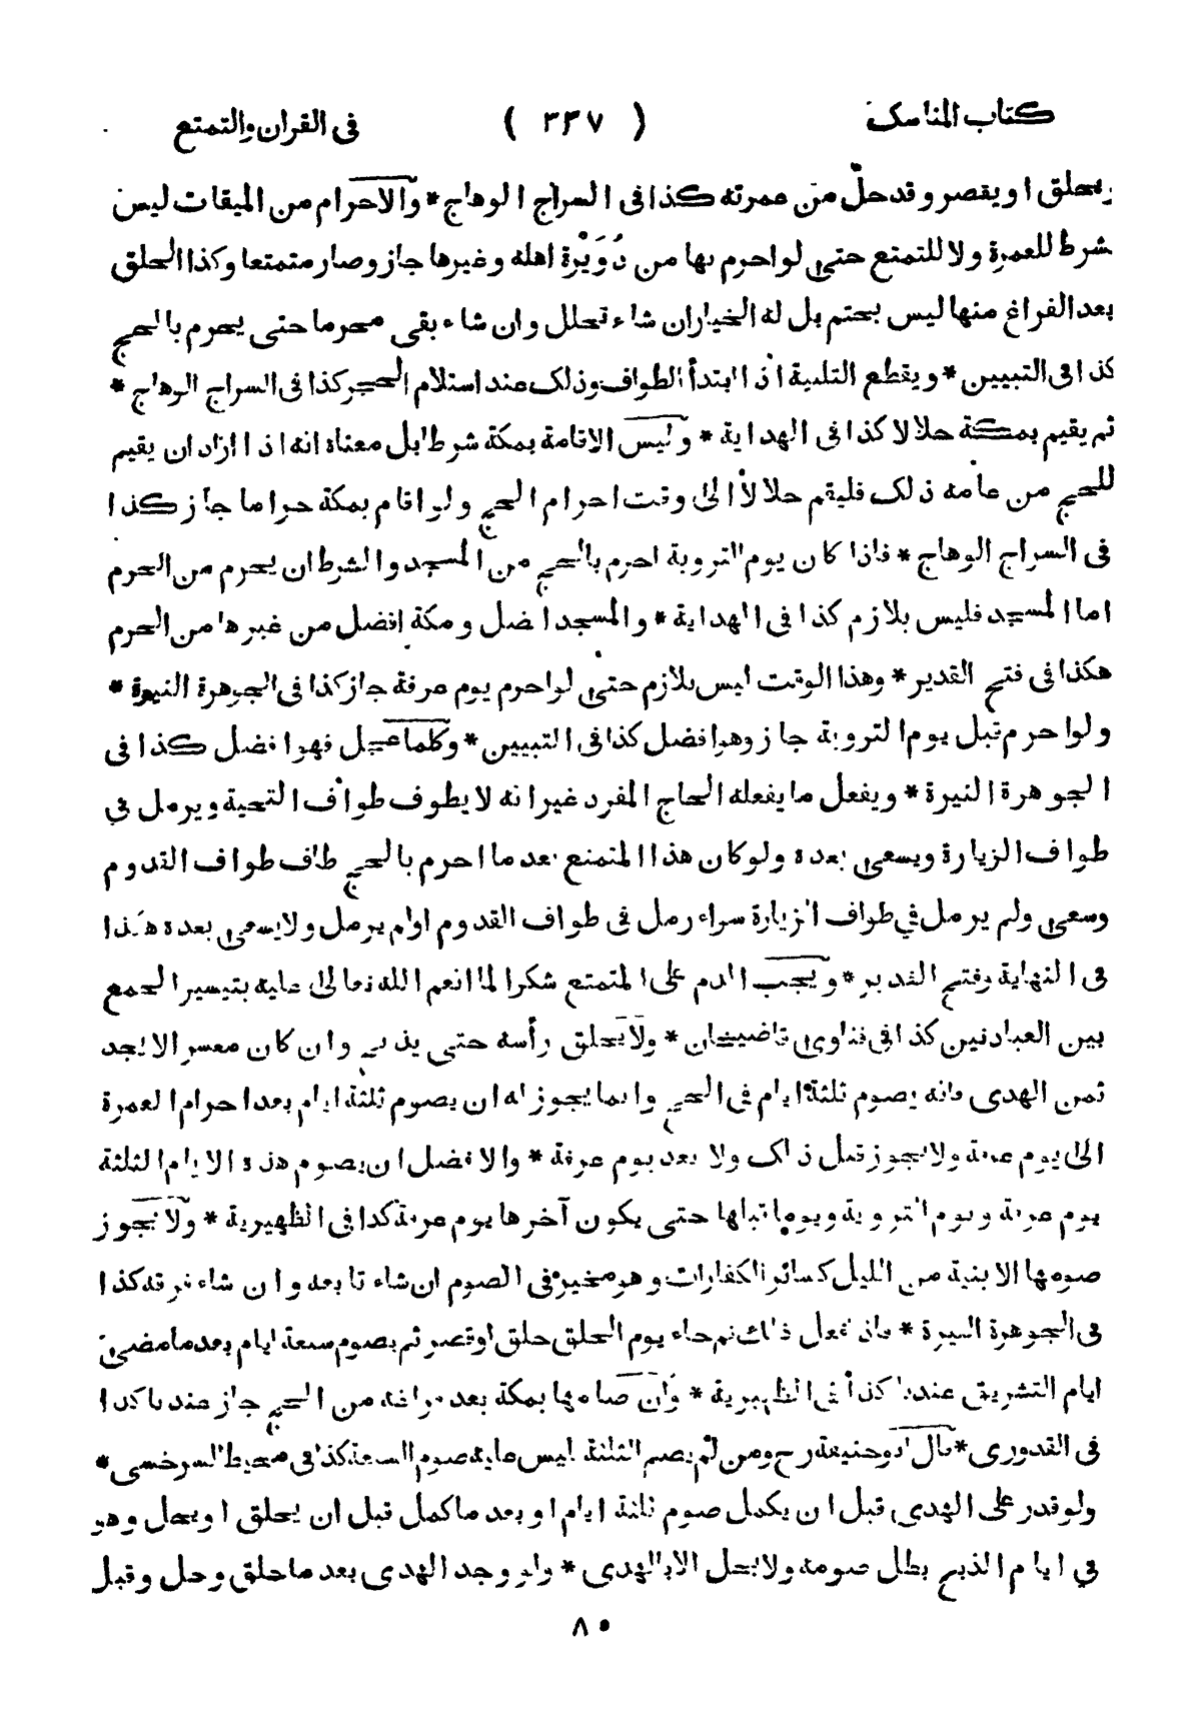 كتاب المناسك ( ٣٣٧ ) فى القران والتمتع
ويحلق او يقصر وقد حل من عمرته كذا فى السراج الوهاج * والاحرام من الميقات ليس
بشرط للعمرة ولا للتمتع حتى لو احرم بها من دُوَيْرة اهله وغيرها جاز وصار متمتعا وكذا الحلق
بعد الفراغ منها ليس بحتم بل له الخيار ان شاء تحلل وان شاء بقى محرما حتى يحرم بالحج
كذا فى التبيين * ويقطع التلبية اذا ابتدأ الطواف وذلك عند استلام الحجر كذا فى السراج الوهاج *
ثم يقيم بمكة حلالا كذا فى الهداية * وليس الاقامة بمكة شرطا بل معناه انه اذا اراد ان يقيم
للحج من عامه ذلك فليقم حلالا الى وقت احرام الحج ولو اقام بمكة حراما جاز كذا
فى السراج الوهاج * فاذا كان يوم التروية احرم بالحج من المسجد والشرط ان يحرم من الحرم
اما المسجد فليس بلازم كذا فى الهداية * والمسجد افضل ومكة افضل من غيرها من الحرم
هكذا فى فتح القدير * وهذا الوقت ليس بلازم حتى لو احرم يوم عرفة جاز كذا فى الجوهرة النيرة *
ولو احرم قبل يوم التروية جاز وهو افضل كذا فى التبيين * وكلما عجل فهو افضل كذا فى
الجوهرة النيرة * ويفعل ما يفعله الحاج المفرد غير انه لا يطوف طواف التحية ويرمل في
طواف الزيارة ويسعى بعده ولو كان هذا المتمتع بعد ما احرم بالحج طاف طواف القدوم
وسعى ولم يرمل في طواف الزيارة سواء رمل فى طواف القدوم او لم يرمل ولا يسعى بعده هكذا
فى النهاية وفتح القدير * ويجب الدم على المتمتع شكرا لما انعم الله تعالى عليه بتيسير الجمع
بين العبادتين كذا فى فتاوى قاضيخان * ولا يحلق رأسه حتى يذبح وان كان معسرا لا يجد
ثمن الهدى فانه يصوم ثلثة ايام فى الحج وانما يجوز له ان يصوم ثلثة ايام بعد احرام العمرة
الى يوم عرفة ولا يجوز قبل ذلك ولا بعد يوم عرفة * والافضل ان يصوم هذه الايام الثلثة
يوم عرفة ويوم التروية ويوما قبلها حتى يكون آخرها يوم عرفة كذا فى الظهيرية * ولا يجوز
صومها الا بنية من الليل كسائر الكفارات وهو مخير فى الصوم ان شاء تابعه وان شاء فرقه كذا
فى الجوهرة النيرة * فان فعل ذلك ثم جاء يوم الحلق حلق او قصر ثم يصوم سبعة ايام بعد ما مضى
ايام التشريق عندنا كذا فى الظهيرية * وان صامها بمكة بعد فراغه من الحج جاز عندنا كذا
فى القدورى * قال ابو حنيفة رح ومن لم يصم الثلثة ليس عليه صوم السبعة كذا فى محيط السرخسى *
ولو قدر على الهدى قبل ان يكمل صوم ثلثة ايام او بعد ما كمل قبل ان يحلق او يحل وهو
في ايام الذبح بطل صومه ولا يحل الا بالهدى * ولو وجد الهدى بعد ما حلق وحل وقبل
٨٥